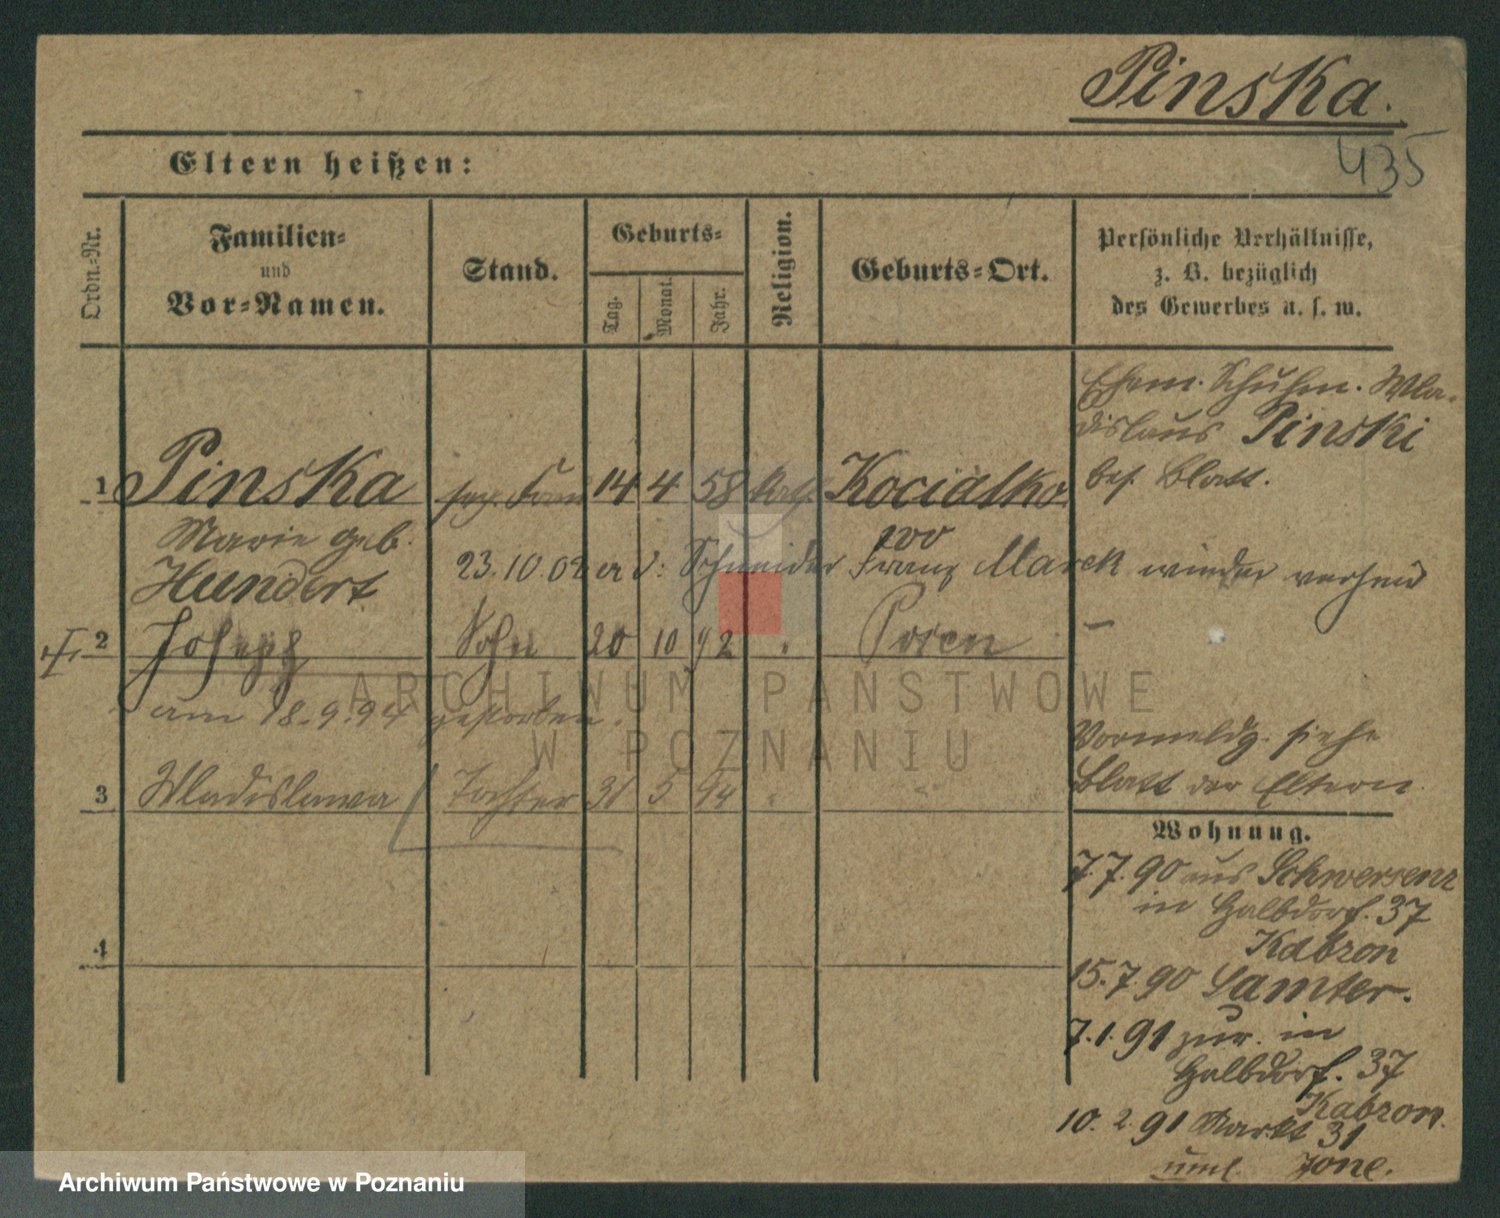 Pinska.
435
Eltern heißen:
Ordn.-Nr.
Familien-
und
Vor-Namen.
Stand.
Geburts-
Tag.
Monat.
Jahr.
Religion.
Geburts-Ort.
Persönliche Verhältnisse,
z. B. bezüglich
des Gewerbes u. s. w.
Ehem. Schuhm. Wla-
dislaus Pinski
bes. Blatt.
1 Pinska 14 4 58 kath. Kociałko
Marie geb.
Hundert
23.10.02 a d: Schneider Franz Marek wieder verheir
2 Joseph Sohn 20 10 92 " Posen –
am 18.9.94 gestorben.
Vormeldg. siehe
Blatt der Eltern
3 Wladislawa Tochter 31 5 94 " "
4
Wohnung.
7.7.90 aus Schwersenz
in Halbdorf. 37
Kabzon
15.7.90 Samter.
7.1.91 zur. in
Halbdorf. 37
Kabzon.
10.2.91 Markt 31
ARCHIWUM PAŃSTWOWE
W POZNANIU
Archiwum Państwowe w Poznaniu